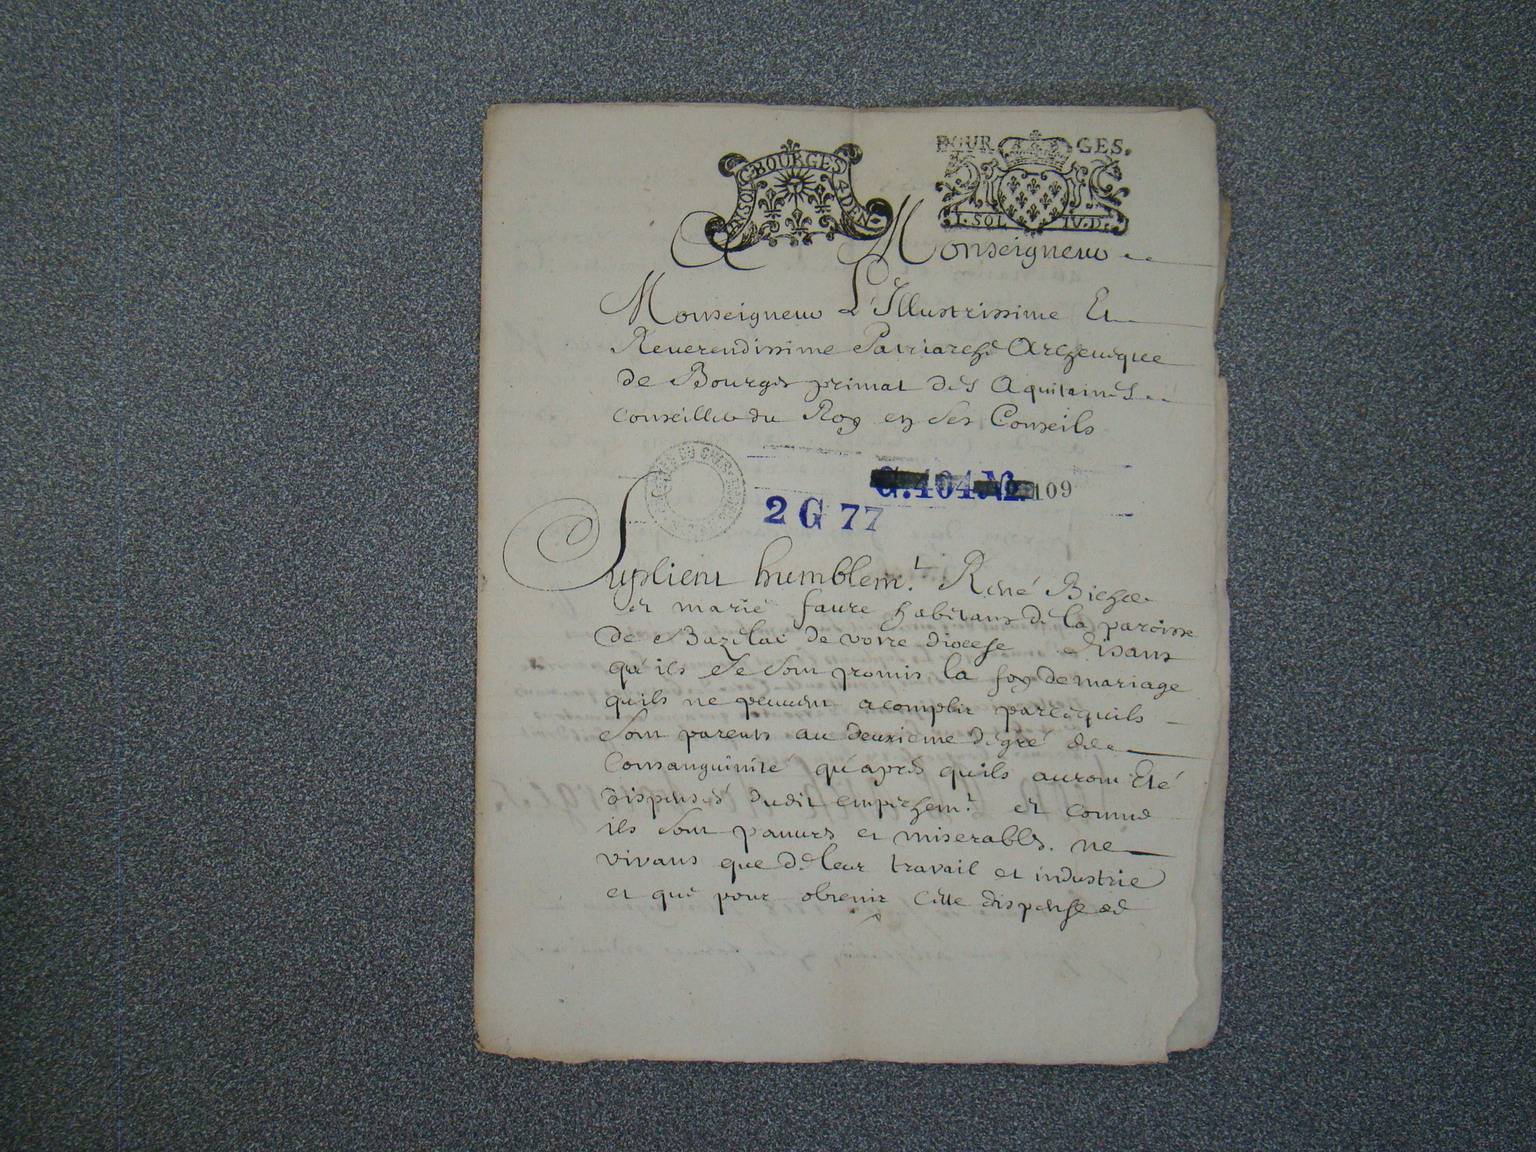 BOURGES
BOURGES.
A Monseigneur
Monseigneur L'Illustrissime Et
Reverendissime Patriarche Archeuêque
de Bourges primat des Aquitaines
Conseiller du Roy en ses Conseils
G. 404 No. 109
2 G 77
Suplient humblemt. René
et marie faure habitans de la paroisse
de Bazelac de votre diocese disans
qu'ils se sont promis la foy de mariage
quils ne peuuent acomplir parcequils
sont parents au deuxieme degré de
Consanguinite qu'apres quils auront Eté
dispensés dudit empechemt. et comme
ils sont pauures et miserables. ne
vivans que de leur travail et industrie
et que pour obtenir cette dispense